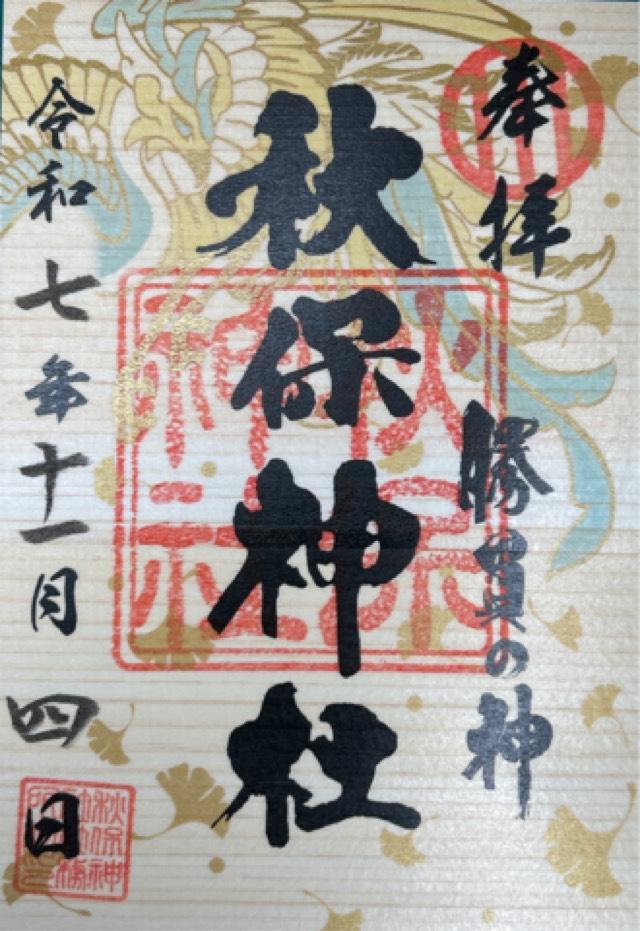 奉拝
勝負の神
秋保神社
令和七年十一月四日
秋保神社